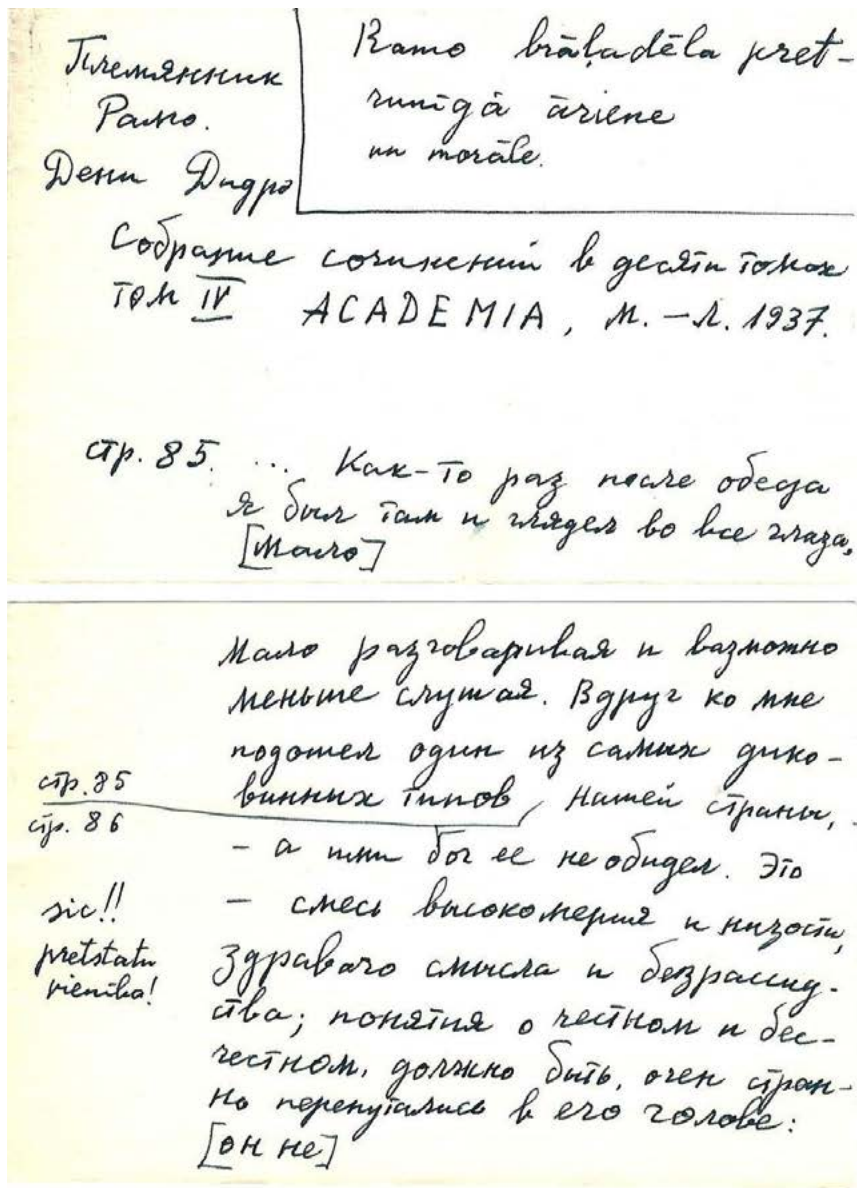 Племянник
Рамо.
Дени Дидро
Ramo brāļadēla pret-
runīgā āriene
un morāle.
Собрание сочинений в десяти томах
том IV ACADEMIA, М.-Л. 1937.
стр. 85. ... Как-то раз после обеда
я был там и глядел во все глаза,
[мало]
мало разговаривая и возможно
меньше слушая. Вдруг ко мне
подошел один из самых дико-
стр. 85
винных типов нашей страны,
стр. 86
- а ими бог ее не обидел. Это
sic!!
- смесь высокомерия и низости,
pretstatu
vienība!
здравого смысла и безрассуд-
ства; понятия о честном и бес-
честном, должно быть, очен стран-
но перепутались в его голове:
[он не]